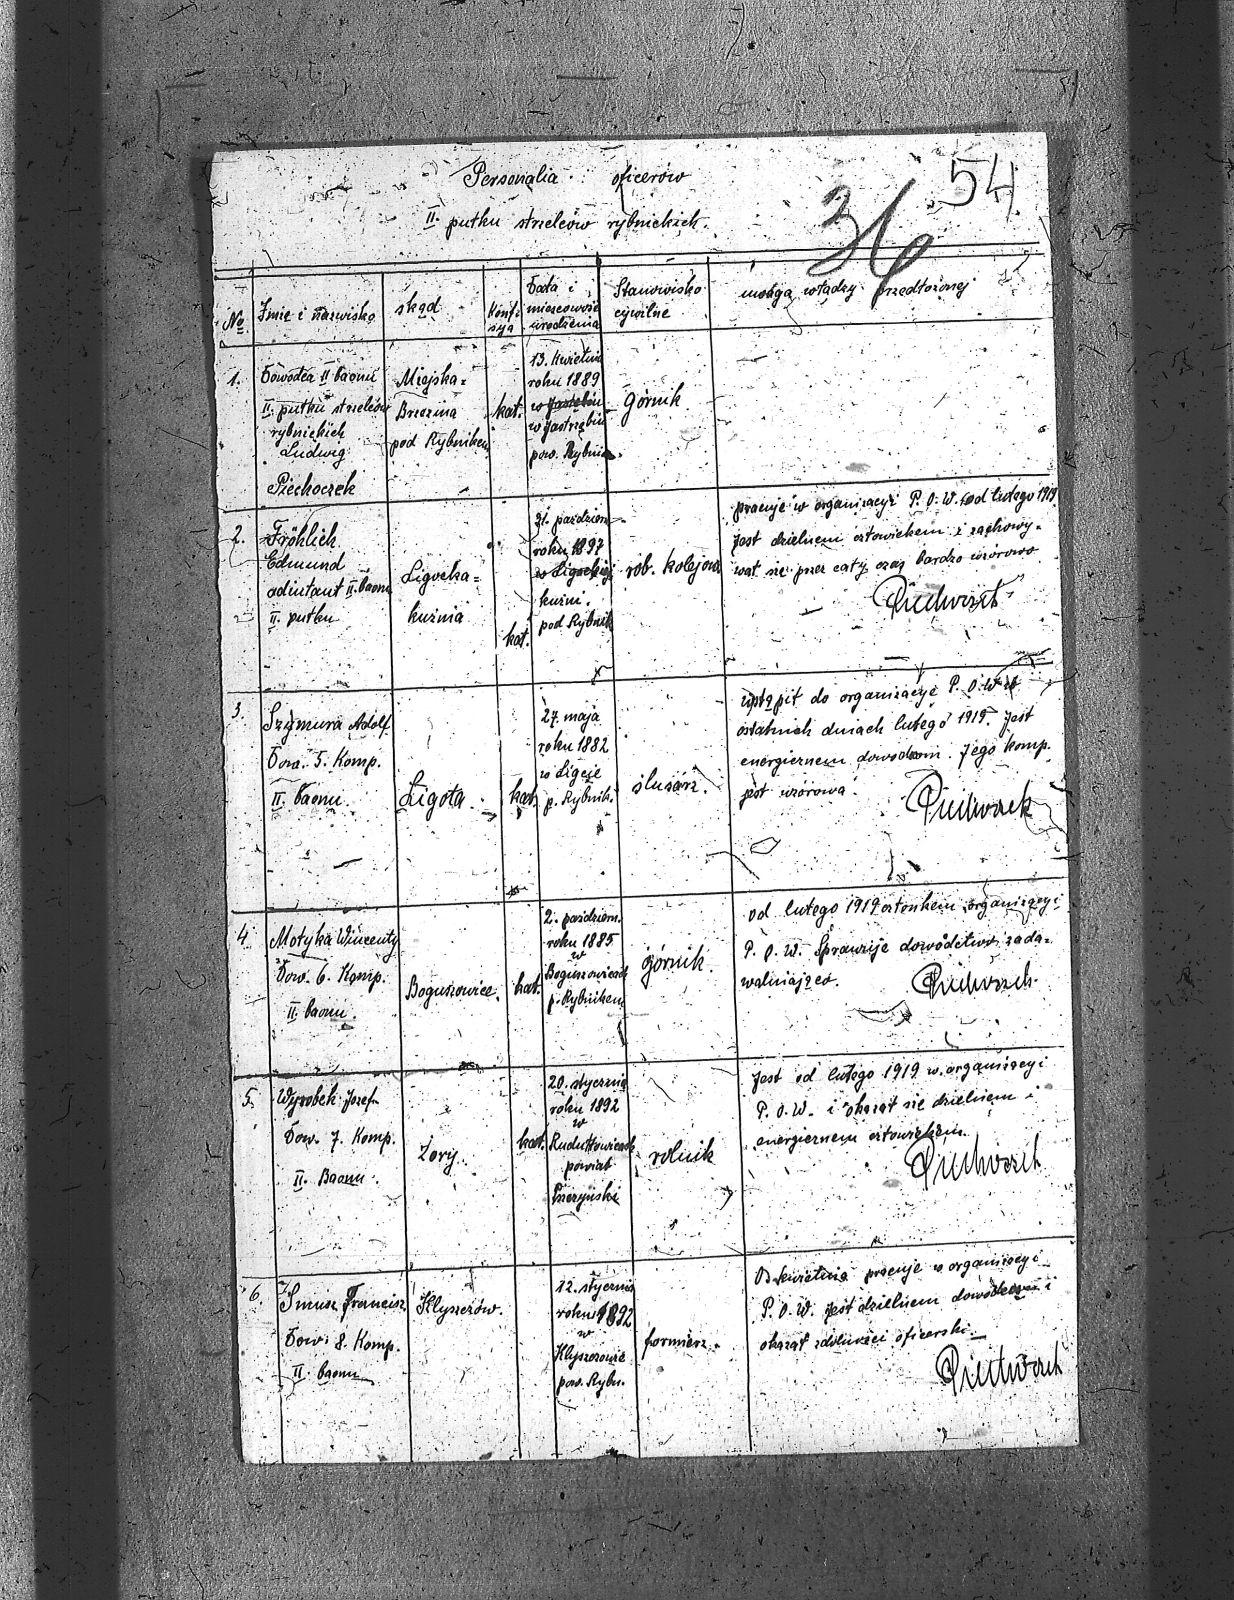 54
36
Personalia oficerów
II. pułku strzelców rybnickich.
No
Imie i nazwisko
skąd
Konfe
sya
Data i
miescowość
urodzenia
Stanowisko
cywilne
uwaga władzy przedłożonej
1.
Dowódca II baonu
II. pułku strzelców
rybnickich
Ludwig
Piechoczek
Miejska-
Brzezina
pod Rybnikem
kat.
13. kwietnia
roku 1889
w Jastzębiu
w Jastrzębiu
pow. Rybnik.
górnik
2.
Fröhlich
Edmund
adiutant II. baonu
II. pułku
Ligocka-
kuźnia
kat.
31. paździer.
roku 1897
w Ligockiej
kuźni.
pod Rybnik
rob. kolejow.
pracuje w organizacyi P. O. W. od lutego 1919
jest dzielnem człowiekem i zachowy-
wał się prez cały czas bardzo wzórowo
Piechoczek
3.
Szymura Adolf.
Dow. 5. Komp.
II. baonu.
Ligota.
kat.
27. maja
roku 1882
w Ligocie
p. Rybnik.
ślusárz.
wstąpił do organizacyi P. O. W. w
ostatnich dniach lutego 1919. Jest
energicznem dowódcom. Jego komp.
jest wzórowa.
Piechoczek
4.
Motyka Wincenty
Dow. 6. Komp.
II. baonu.
Boguszowice.
kat.
2. październ.
roku 1885
w
Boguszowicach
p. Rybnikem
górnik.
od lutego 1919 członkem organizacyi
P. O. W. Sprawuje dowództwo zada-
walniająco.
Piechoczek
5.
Wyrobek Jozef
Dow. 7. Komp.
II. Baonu.
Żory.
kat.
20. stycznia
roku 1892
w
Rudułtowicach
powiat
Pszczyński
rolnik
jest od lutego 1919 w organizacyi
P. O. W. i okazał się dzielnem i
energicznem człowiekem.
Piechoczek
6.
Smusz Francisz
Dow. 8. Komp.
II. baonu
Klyszczów.
12. stycznia
roku 1892
w
Klyszczowie
pow. Rybn.
formierz.
Od kwietnia pracuje w organizacyi
P. O. W. jest dzielnem dowódcem i
okazał zdolności oficerski.
Piechoczek